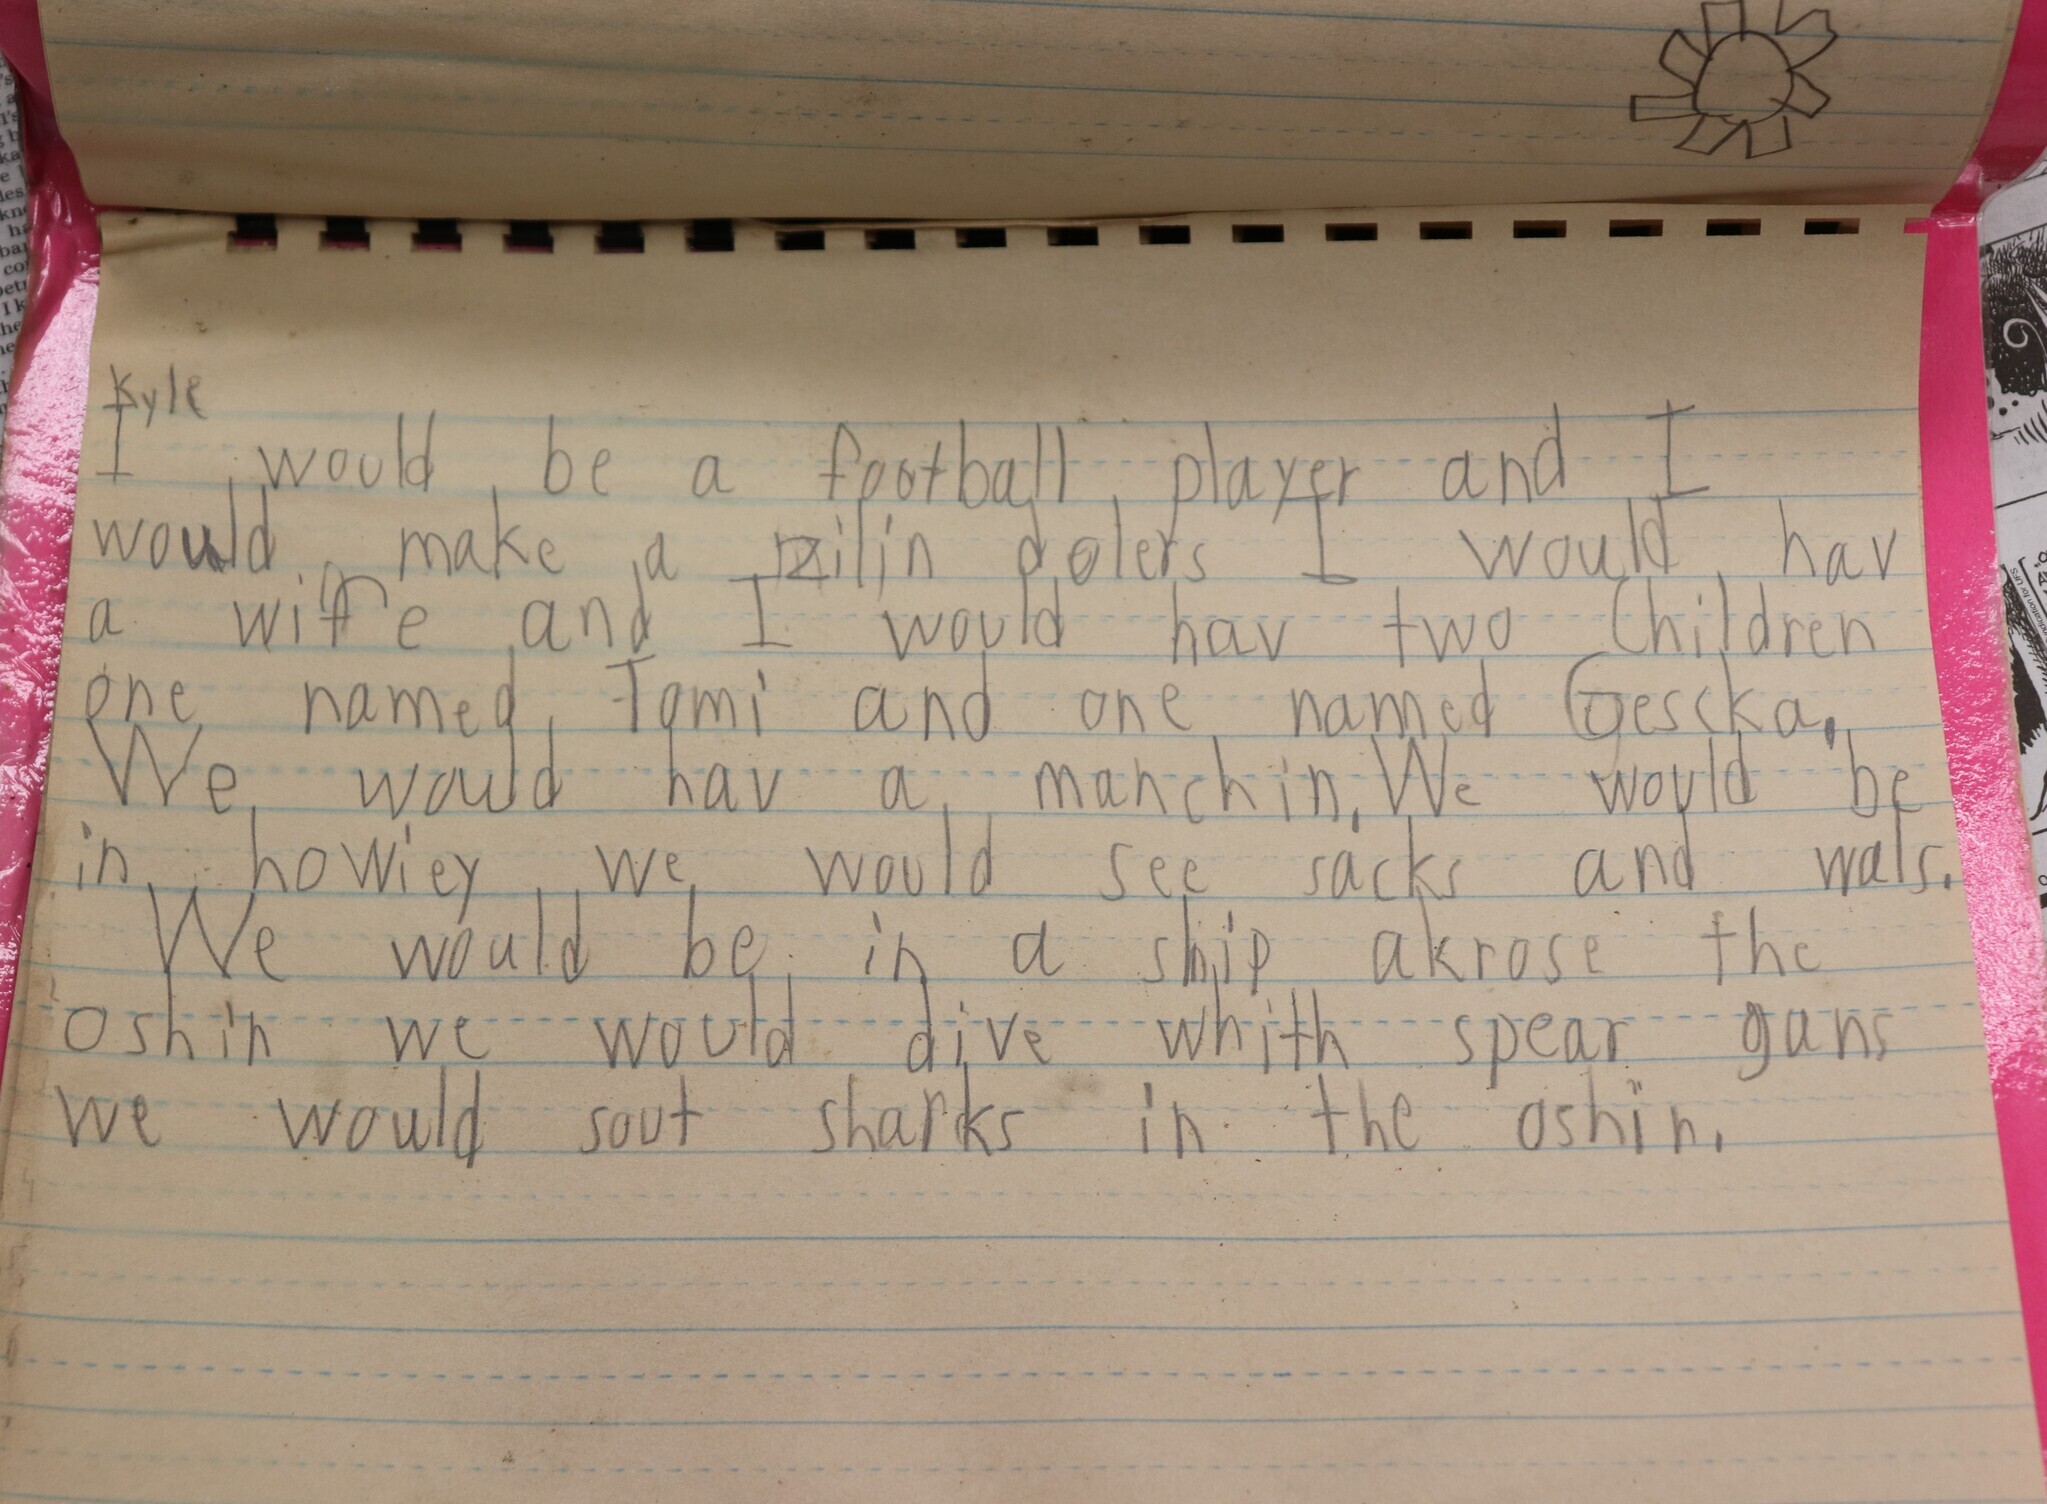 Kyle
I would be a football player and I
would make a zilin dolers I would hav
a wife and I would hav two Children
one named Tomi and one named Gescka.
We would hav a manchin. We would be
in howiey we would see sacks and wals.
We would be in a ship akrose the
oshin we would dive whith spear guns
we would sout sharks in the oshin.